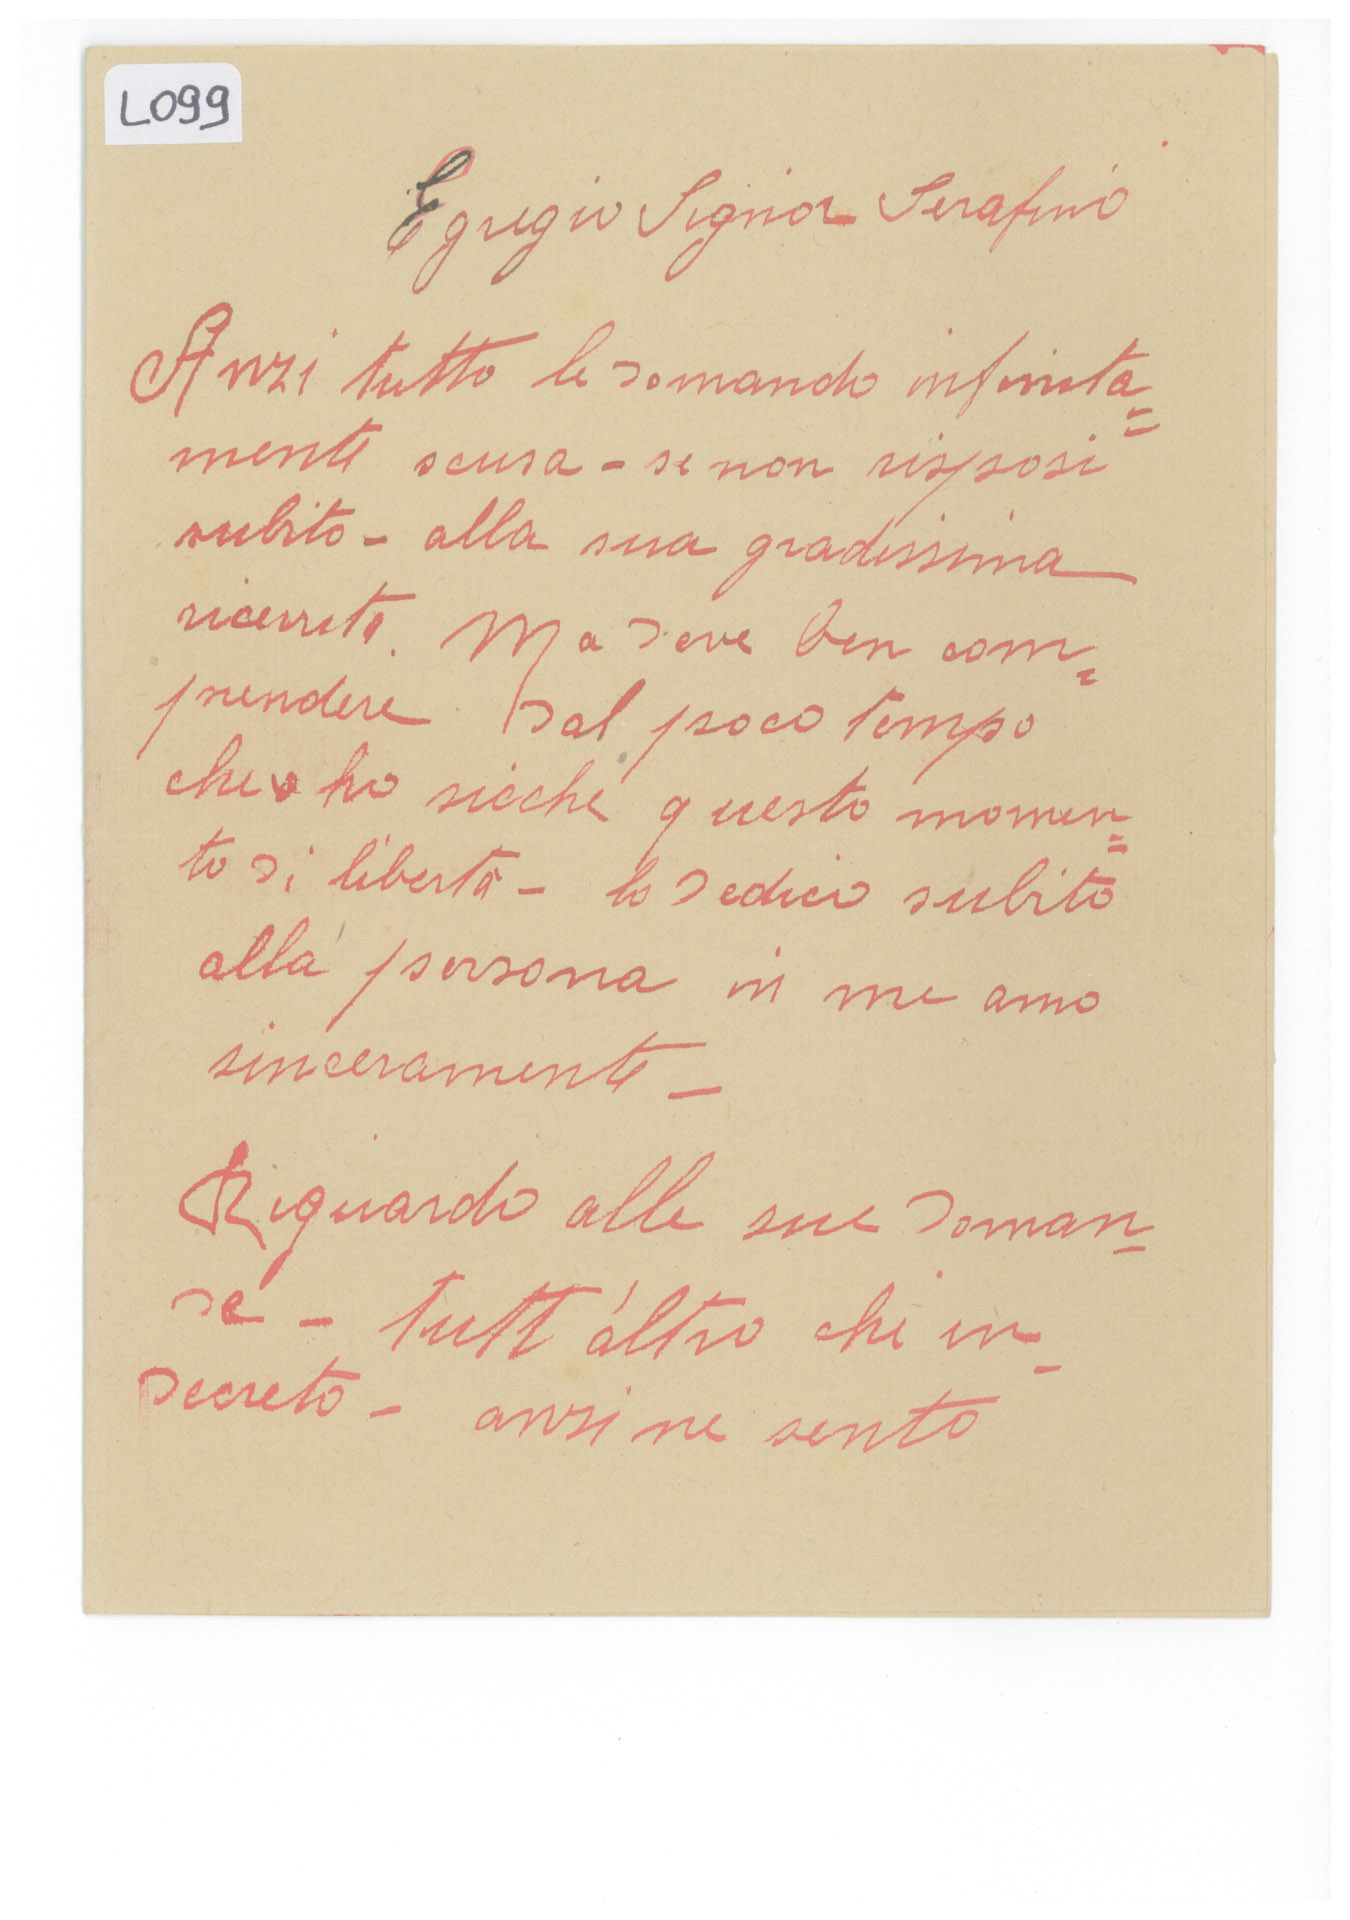 L099
Egregio Signor Serafino
Anzi tutto le domando infinita=
mente scusa - se non risposi
subito - alla sua gradissima
ricevuta. Ma deve ben com=
prendere dal poco tempo
che ho sicchè questo momen=
to di libertà - lo dedico subito
alla persona in me amo
sinceramente -
Riguardo alle sue doman-
de - tutt'altro che in-
decreto - anzi ne sento